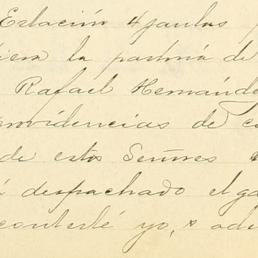 Estación 4 jaulas
la pastoria de
Rafael Hernánde
rovidencias de
de estos Señores
despachado el ga
contesté yo, adu